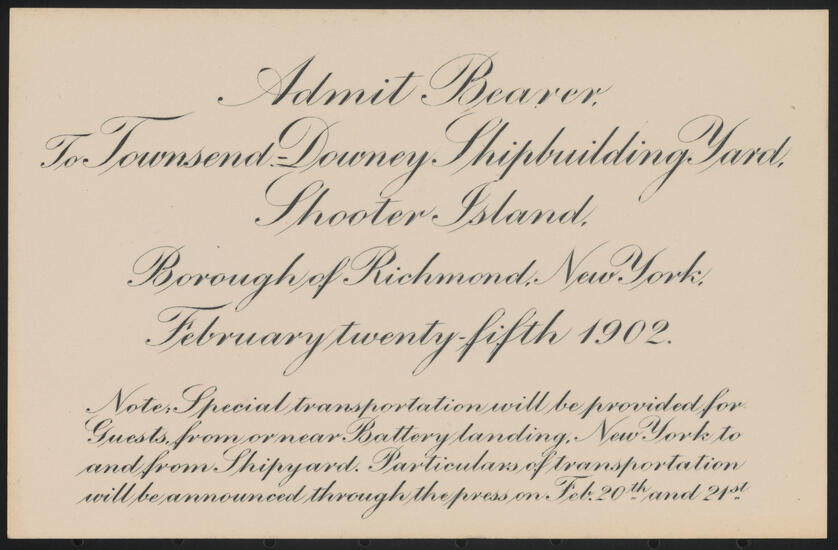 Admit Bearer,
To Townsend-Downey Shipbuilding Yard,
Shooter Island,
Borough of Richmond, New York,
February twenty-fifth 1902.
Note; Special transportation will be provided for
Guests, from or near Battery landing, New York to
and from Shipyard. Particulars of transportation
will be announced through the press, on Feb. 20th and 21st